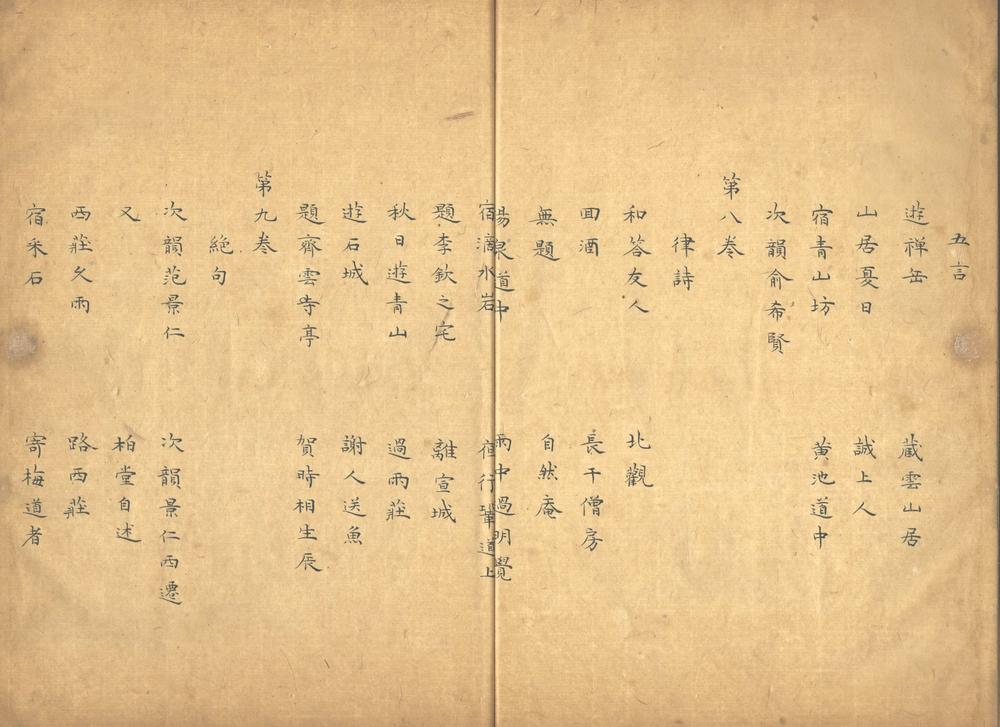 五言
遊禅岳 蔵雲山居
山居夏日 誠上人
宿青山坊 黄池道中
次韻俞希賢
第八巻
律詩
和答友人 北觀
回酒 長干僧房
無題 自然庵
湯泉道中 雨中過明覺
宿滴水岩 宿行鞏道上
題李欽之宅 離宣城
秋日遊青山 過雨莊
遊石城 謝人送魚
題齊雲寺亭 賀時相生辰
第九巻
絶句
次韻范景仁 次韻景仁西遷
又 柏堂自述
西莊久雨 路西莊
宿采石 寄梅道者